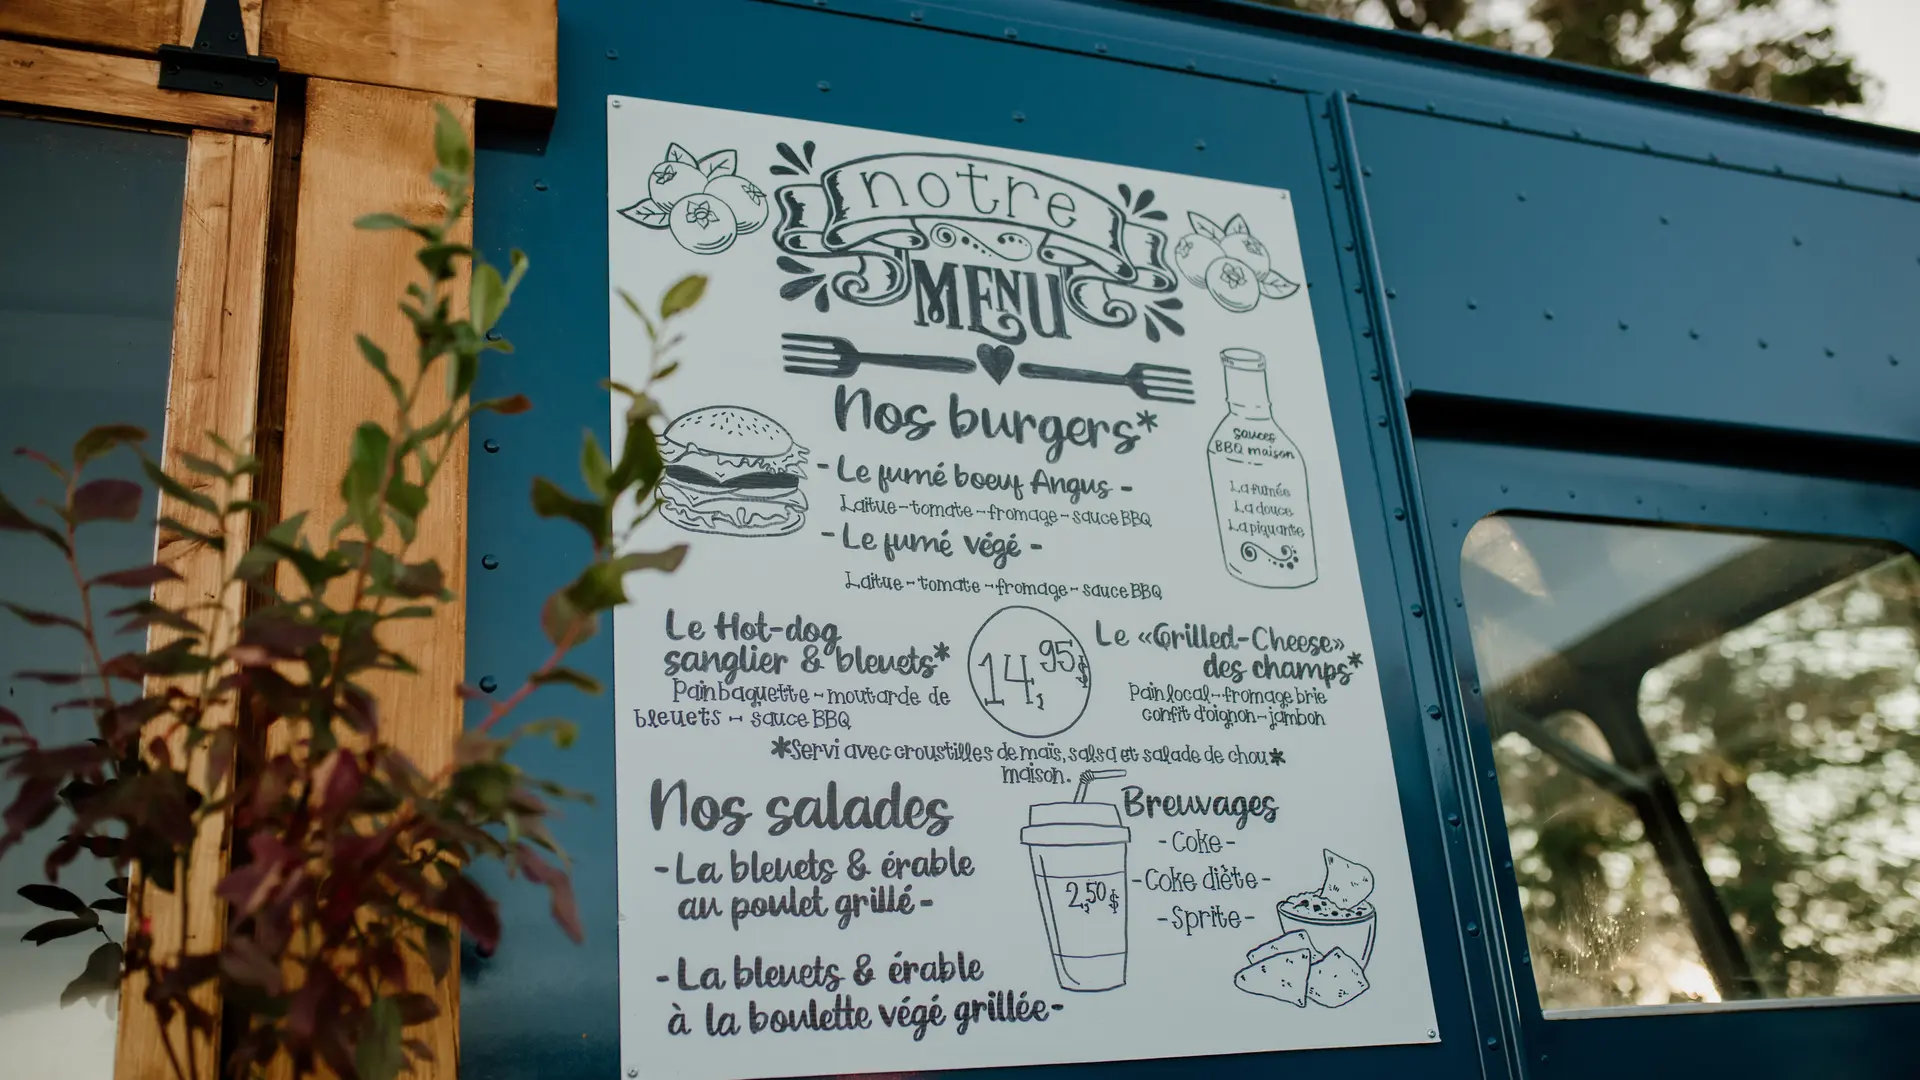 notre
MENU
Nos burgers*
- Le fumé boeuf Angus -
Laitue - tomate - fromage - sauce BBQ
- Le fumé végé -
Laitue - tomate - fromage - sauce BBQ
sauces
BBQ maison
La fumée
La douce
La piquante
Le Hot-dog
sanglier & bleuets*
Pain baguette - moutarde de
bleuets - sauce BBQ
14,95$
Le «Grilled-Cheese»
des champs*
Pain local - fromage brie
confit d'oignon - jambon
*Servi avec croustilles de maïs, salsa et salade de chou*
maison.
Nos salades
- La bleuets & érable
au poulet grillé -
- La bleuets & érable
à la boulette végé grillée -
2,50$
Breuvages
- Coke -
- Coke diète -
- Sprite -